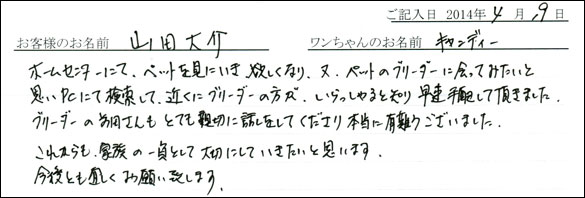 ご記入日 2014年 4月 9日
お客様のお名前 山田大介 ワンちゃんのお名前 キャンディー
ホームセンターにて、ペットを見にいき欲しくなり、又、ペットのブリーダーに会ってみたいと
思いPCにて検索して、近くにブリーダーの方が、いらっしゃると知り早速手配して頂きました。
ブリーダーの さんもとても親切に話しをしてくださり本当に有難うございました。
これからも、家族の一員として大切にしていきたいと思います。
今後とも宜しくお願い致します。